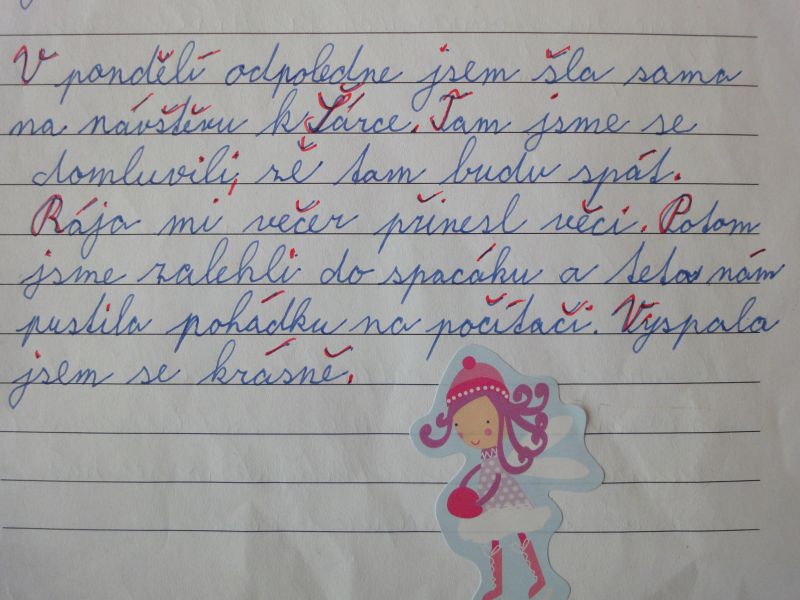 V pondělí odpoledne jsem šla sama
na návštěvu k Šárce. Tam jsme se
domluvili, že tam budu spát.
Rája mi večer přinesl věci. Potom
jsme zalehli do spacáku a teta nám
pustila pohádku na počítači. Vyspala
jsem se krásně.